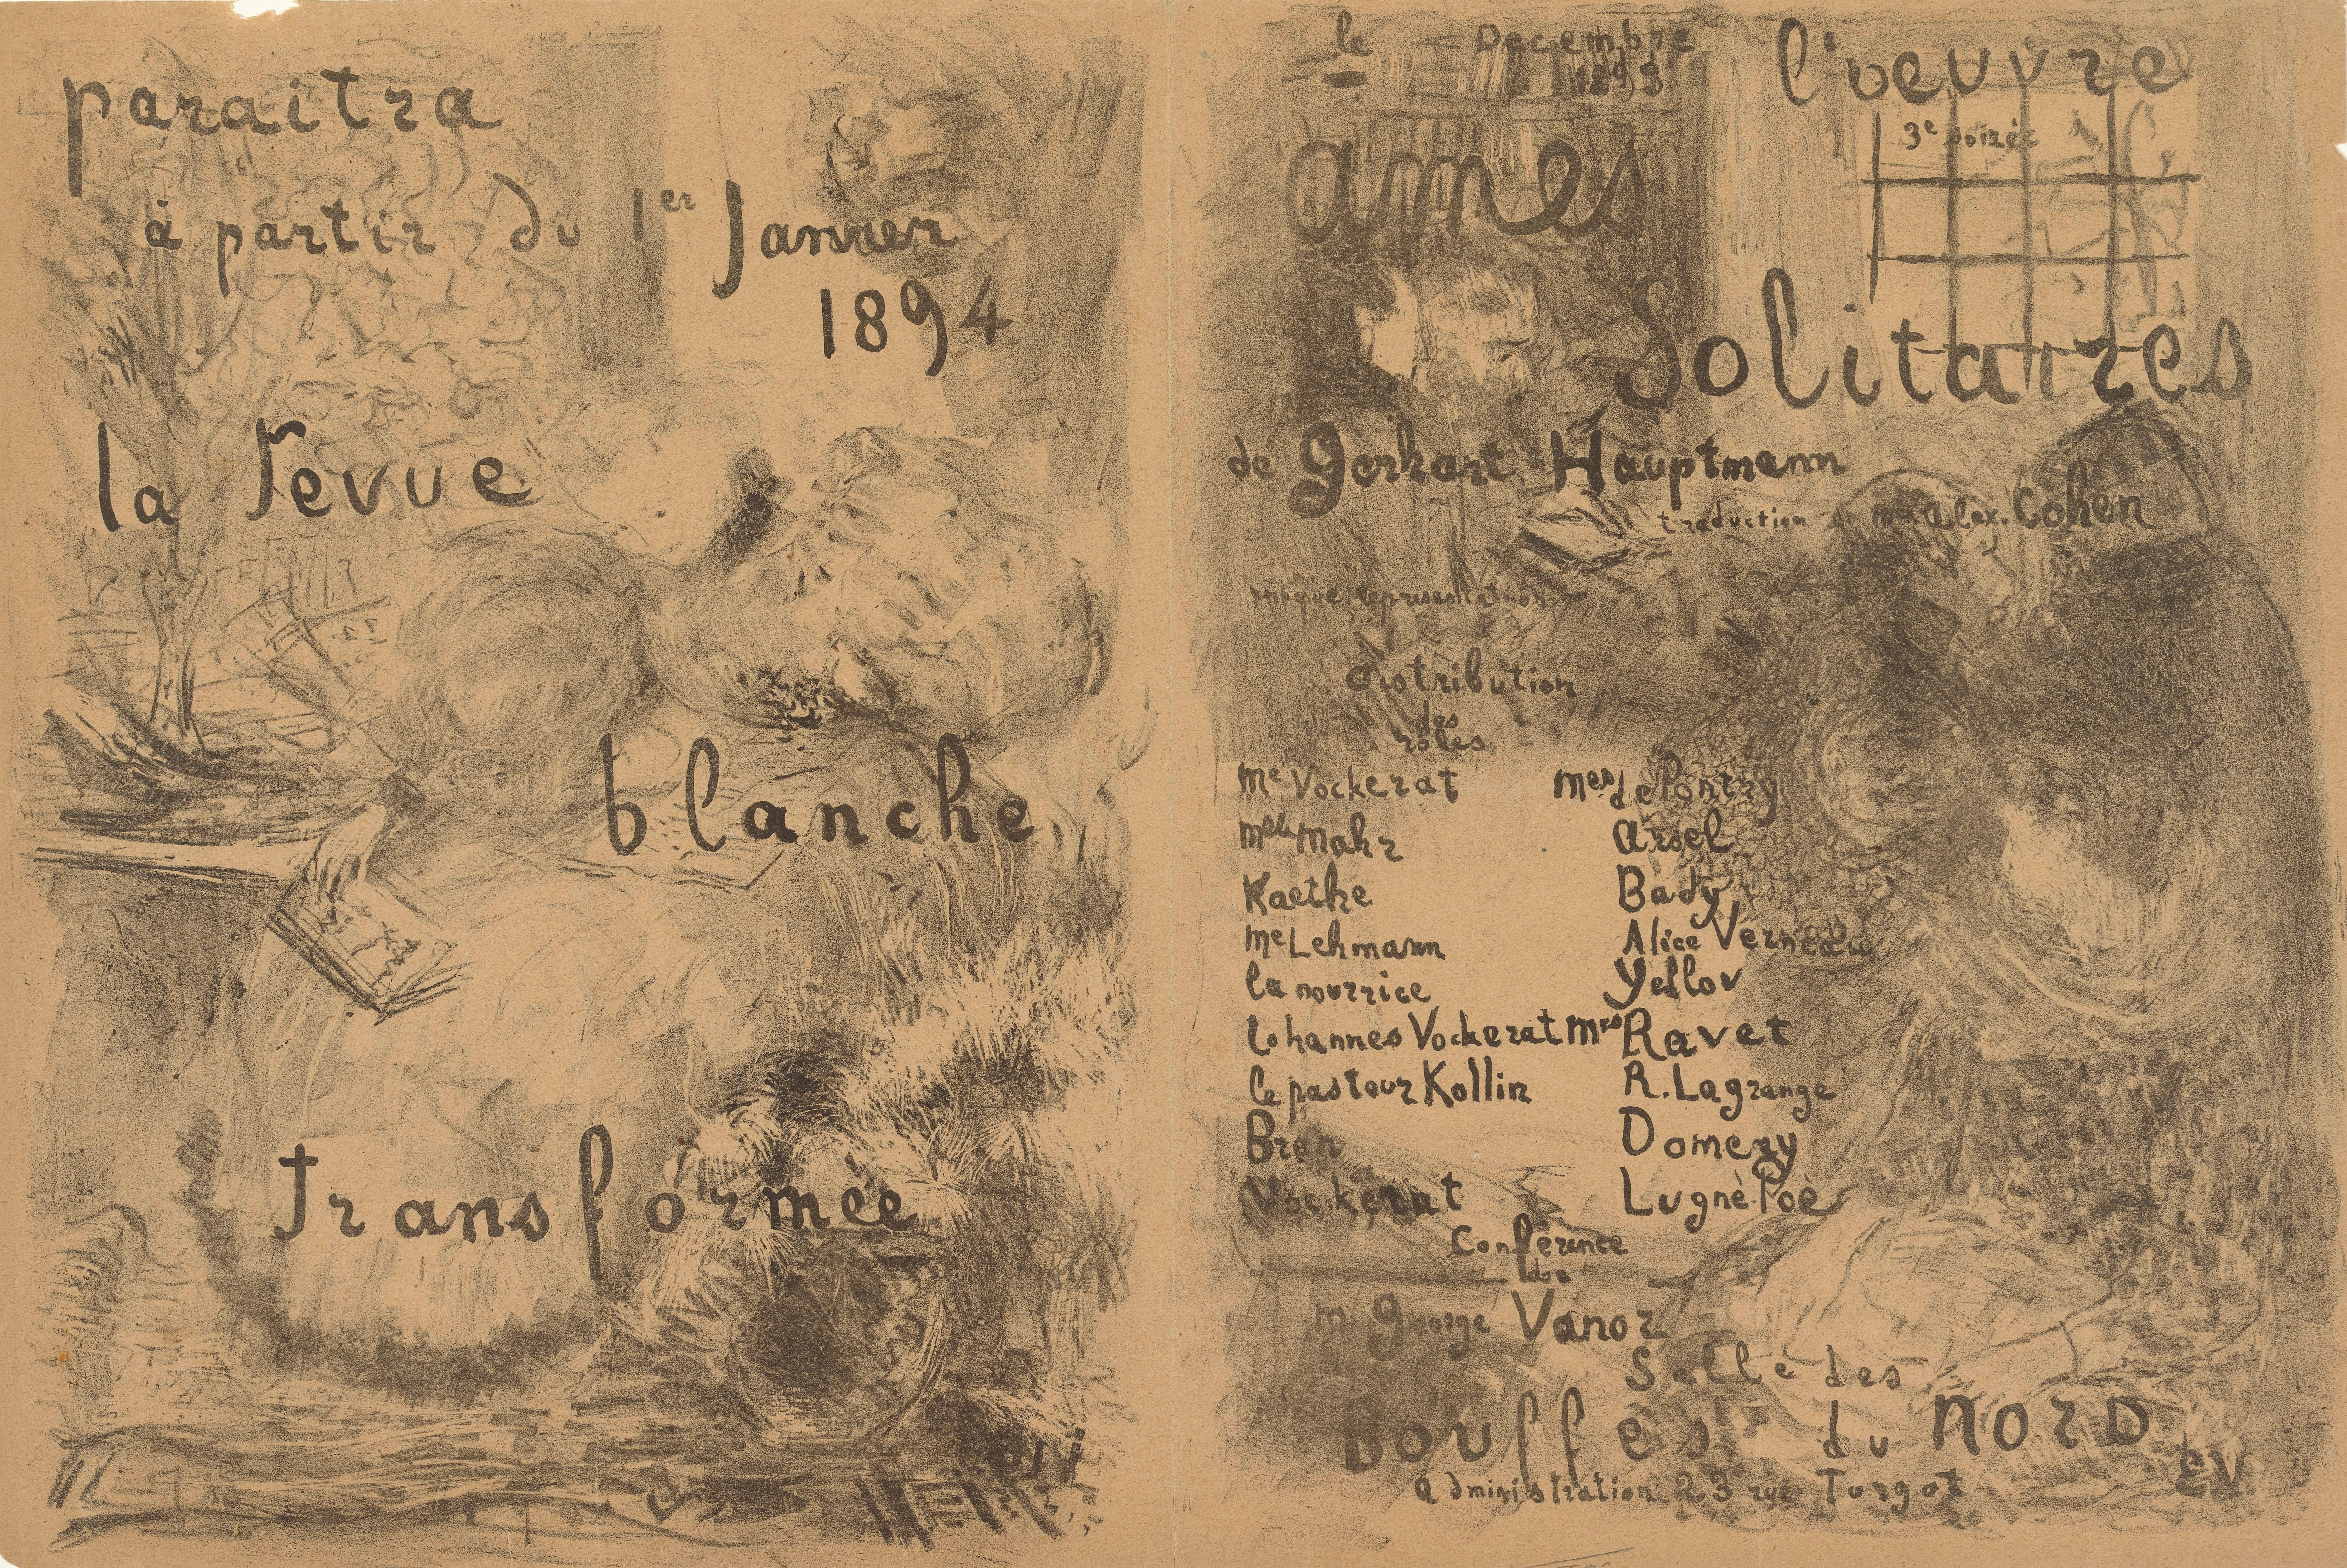 paraitra
à partir du 1er Janvier
1894
la revue
blanche
transformée
E.V
le Decembre
1893
l'oeuvre
3e soirée
ames
Solitaires
de Gerhart Hauptmann
traduction de Mr Alex. Cohen
unique représentation
distribution
des
rôles
Me Vockerat Mes de Pontry
Mlle Mahr Arsel
Kaethe Bady
Me Lehmann Alice Verneau
la nourrice Yellov
Iohannes Vockerat Mrs Ravet
le pasteur Kollin R. Lagrange
Bran Domery
Vockerat Lugné Poe
Conférence
de
m George Vanor
Salle des
Bouffes du Nord
administration 23 rue Turgot
E.V.